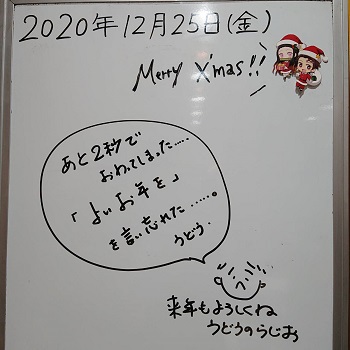 2020年12月25日(金)
Merry X'mas!!
あと2秒で
おわってしまった.....
「よいお年を」
を言い忘れた......。
うどう.
来年もよろしくね
うどうのらじお